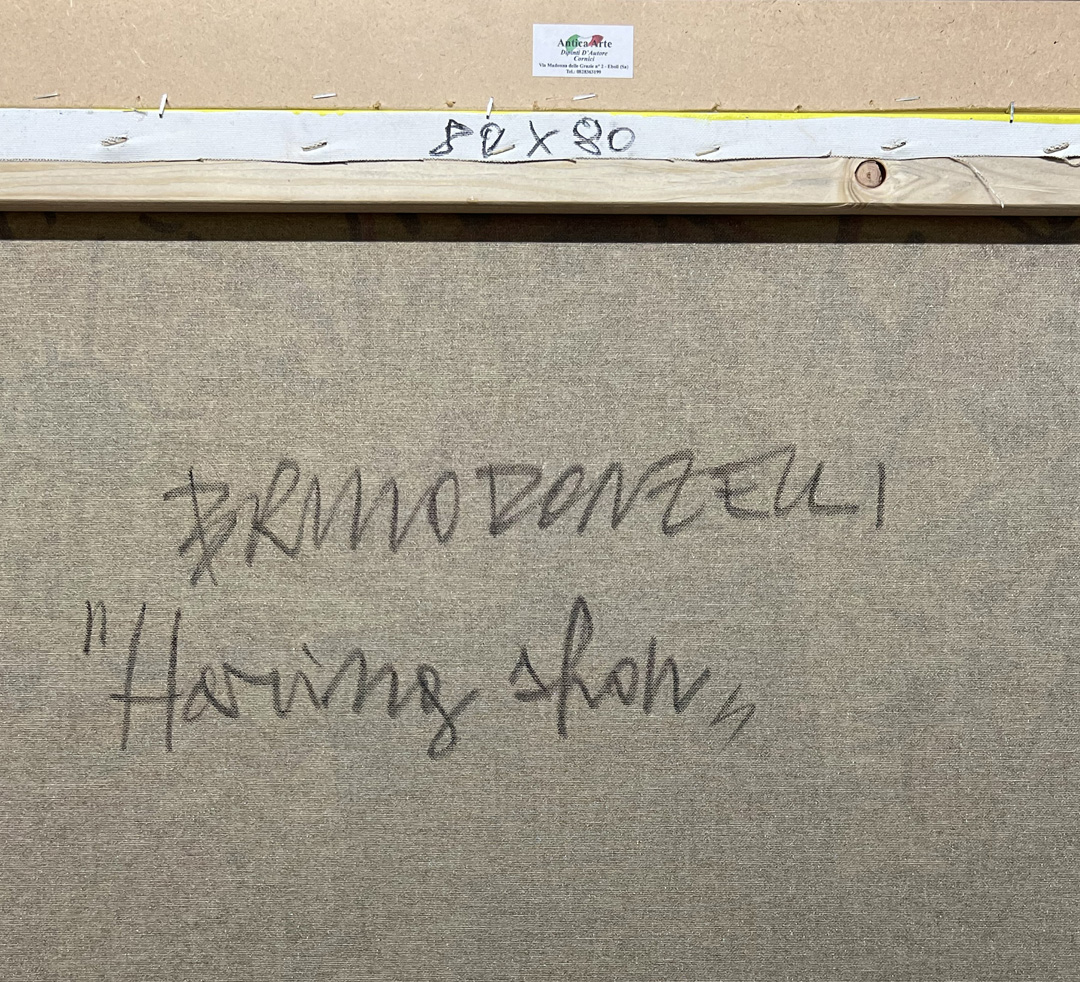 Antica Arte
Dipinti D'Autore
Cornici
Via Madonna delle Grazie n° 2 - Eboli (Sa)
Tel.: 0828363199
82 X 80
BRUNO DONZELLI
"Haring show"